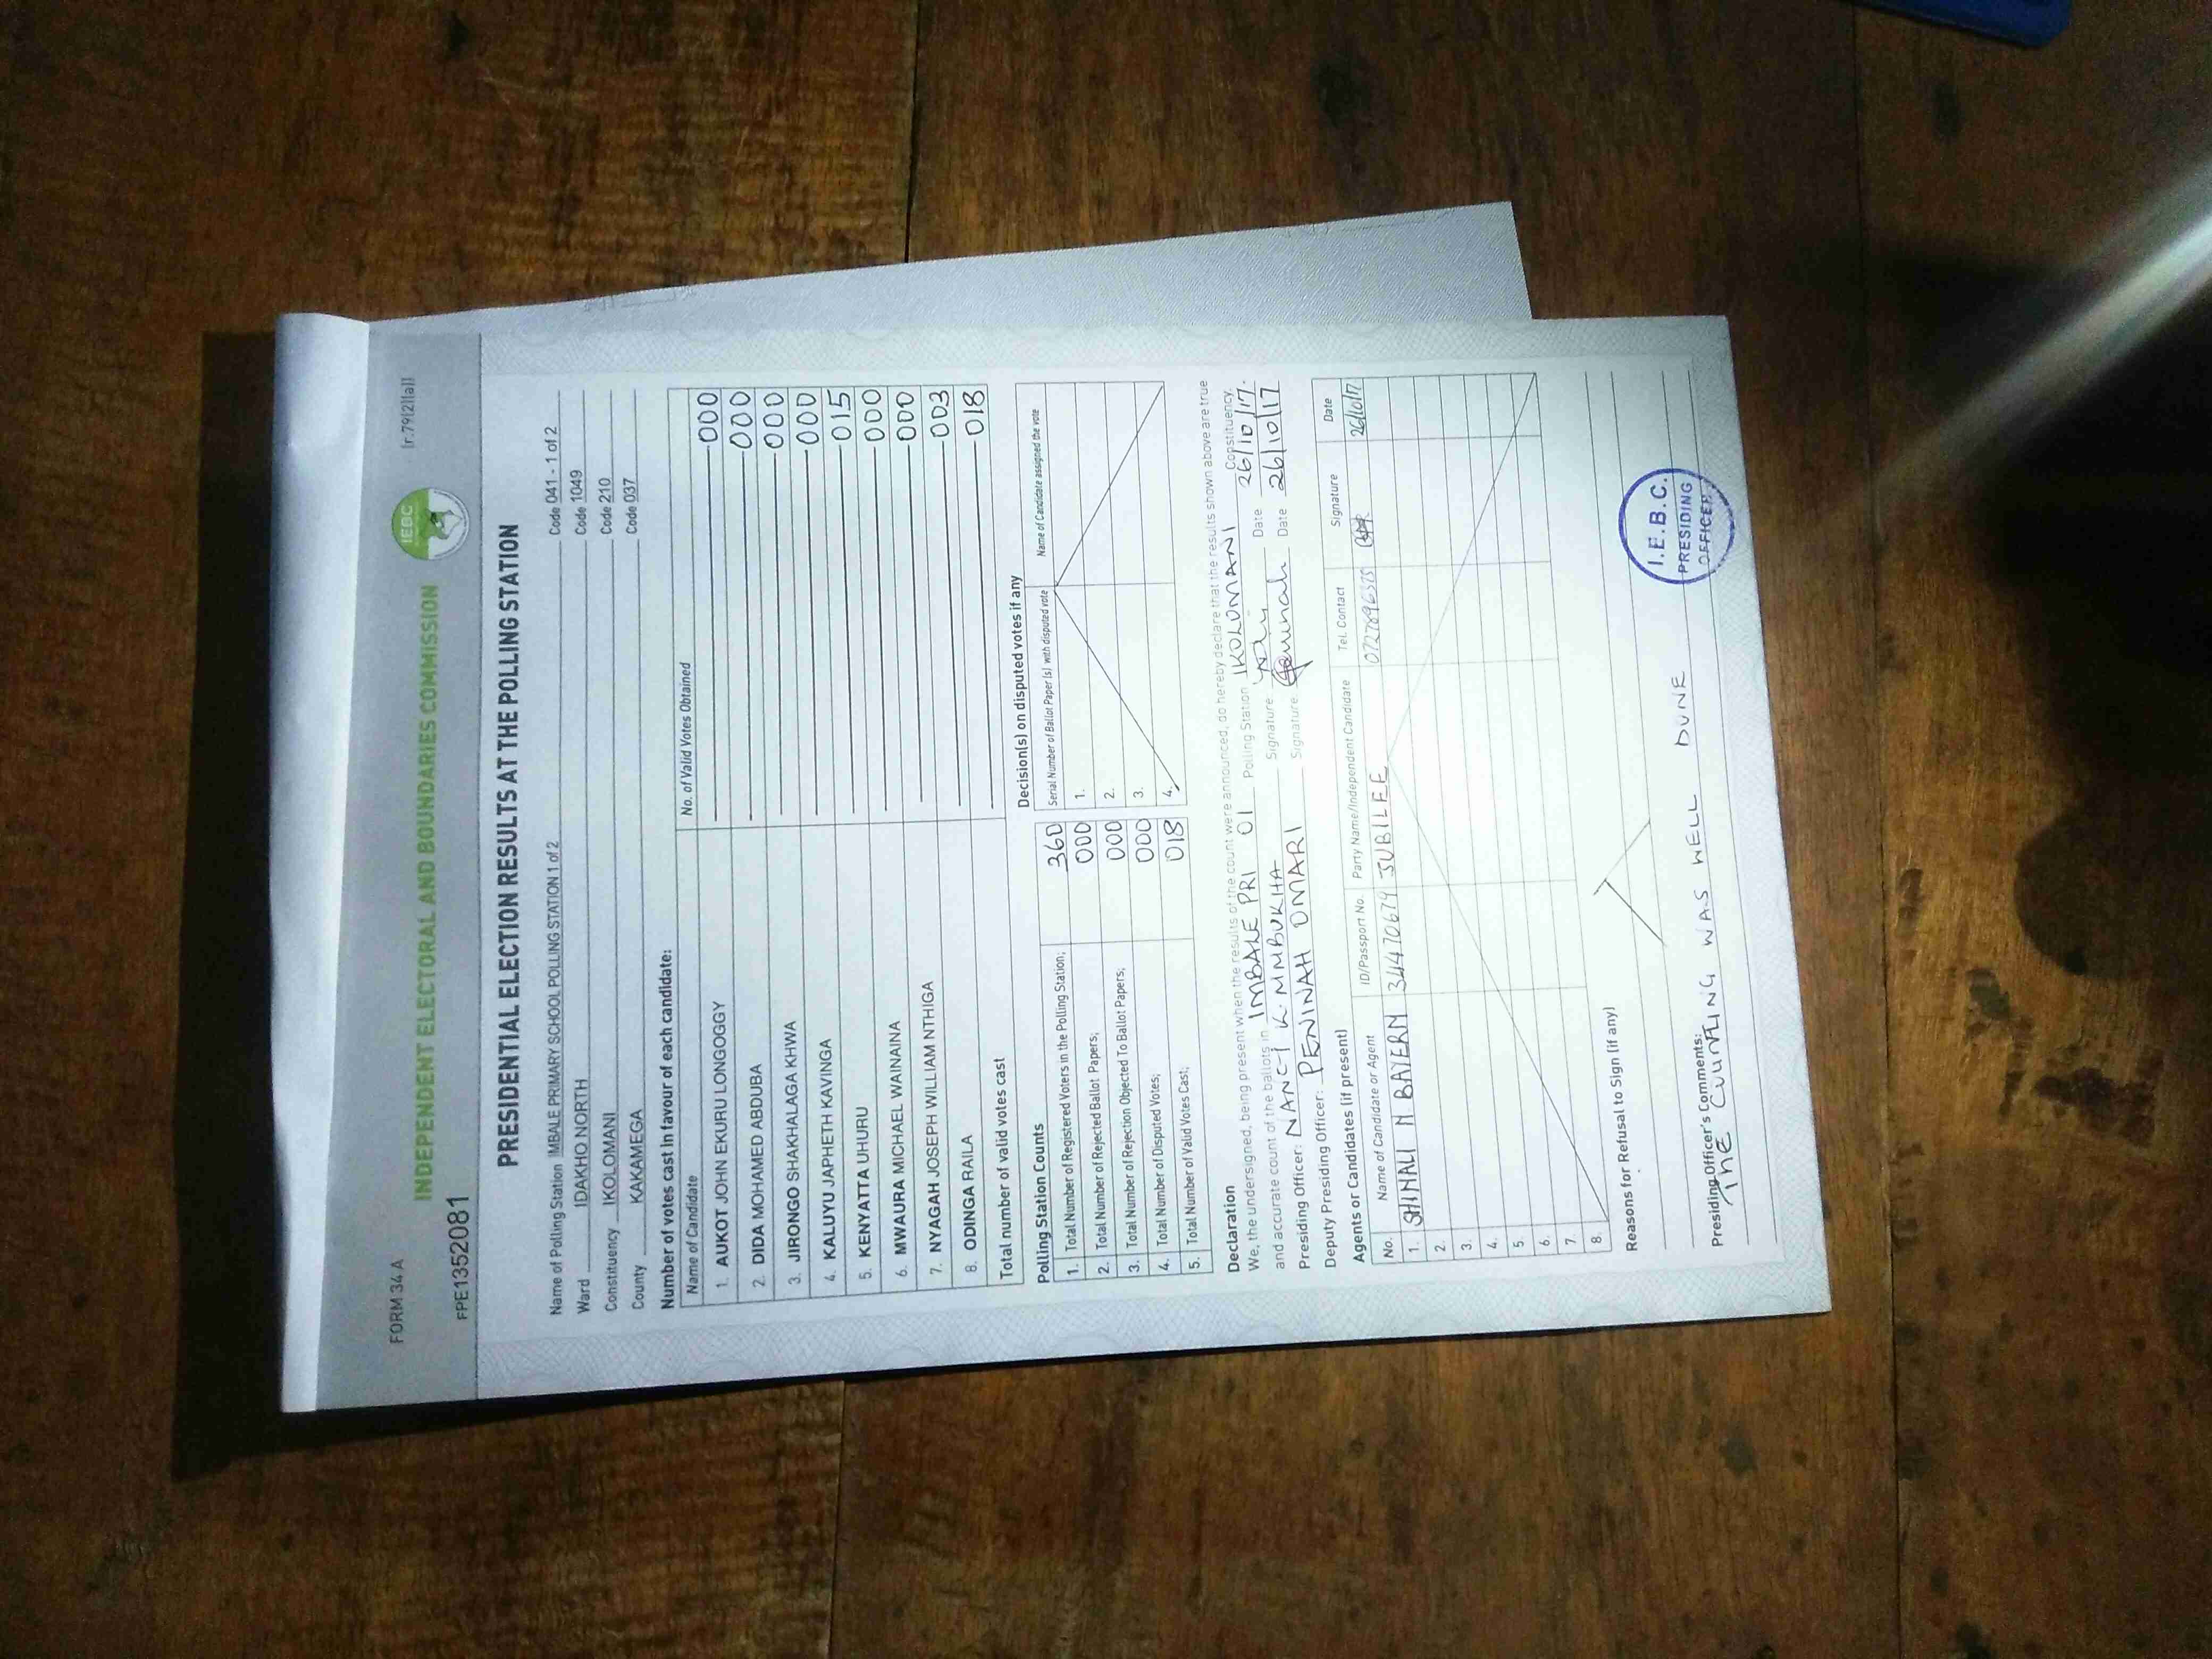 FORM 34 A
[r.79(2)(a)]
INDEPENDENT ELECTORAL AND BOUNDARIES COMMISSION
IEBC
FPE1352081
PRESIDENTIAL ELECTION RESULTS AT THE POLLING STATION
Name of Polling Station IMBALE PRIMARY SCHOOL POLLING STATION 1 of 2 Code 041 - 1 of 2
Ward IDAKHO NORTH Code 1049
Constituency IKOLOMANI Code 210
County KAKAMEGA Code 037
Number of votes cast in favour of each candidate:
Name of Candidate No. of Valid Votes Obtained
1. AUKOT JOHN EKURU LONGOGGY 000
2. DIDA MOHAMED ABDUBA 000
3. JIRONGO SHAKHALAGA KHWA 000
4. KALUYU JAPHETH KAVINGA 000
5. KENYATTA UHURU 015
6. MWAURA MICHAEL WAINAINA 000
7. NYAGAH JOSEPH WILLIAM NTHIGA 000
8. ODINGA RAILA 003
Total number of valid votes cast 018
Polling Station Counts
1. Total Number of Registered Voters in the Polling Station; 360
2. Total Number of Rejected Ballot Papers; 000
3. Total Number of Rejection Objected To Ballot Papers; 000
4. Total Number of Disputed Votes; 000
5. Total Number of Valid Votes Cast; 018
Decision(s) on disputed votes if any
Serial Number of Ballot Paper (s) with disputed vote Name of Candidate assigned the vote
1.
2.
3.
4.
Declaration
We, the undersigned, being present when the results of the count were announced, do hereby declare that the results shown above are true
and accurate count of the ballots in IMBALE PRI 01 Polling Station IKOLOMANI Constituency.
Presiding Officer: NANCY K. MMBUKHA Signature Date 26/10/17.
Deputy Presiding Officer: PENINAH OMARI Signature Peninah Date 26/10/17
Agents or Candidates (if present)
No. Name of Candidate or Agent ID/Passport No. Party Name/Independent Candidate Tel. Contact Signature Date
1. SHINALI N BAYERN 34470674 JUBILEE 26/10/17
2.
3.
4.
5.
6.
7.
8.
Reasons for Refusal to Sign (if any)
Presiding Officer's Comments:
THE COUNTING WAS WELL DONE
I.E.B.C.
PRESIDING
OFFICER